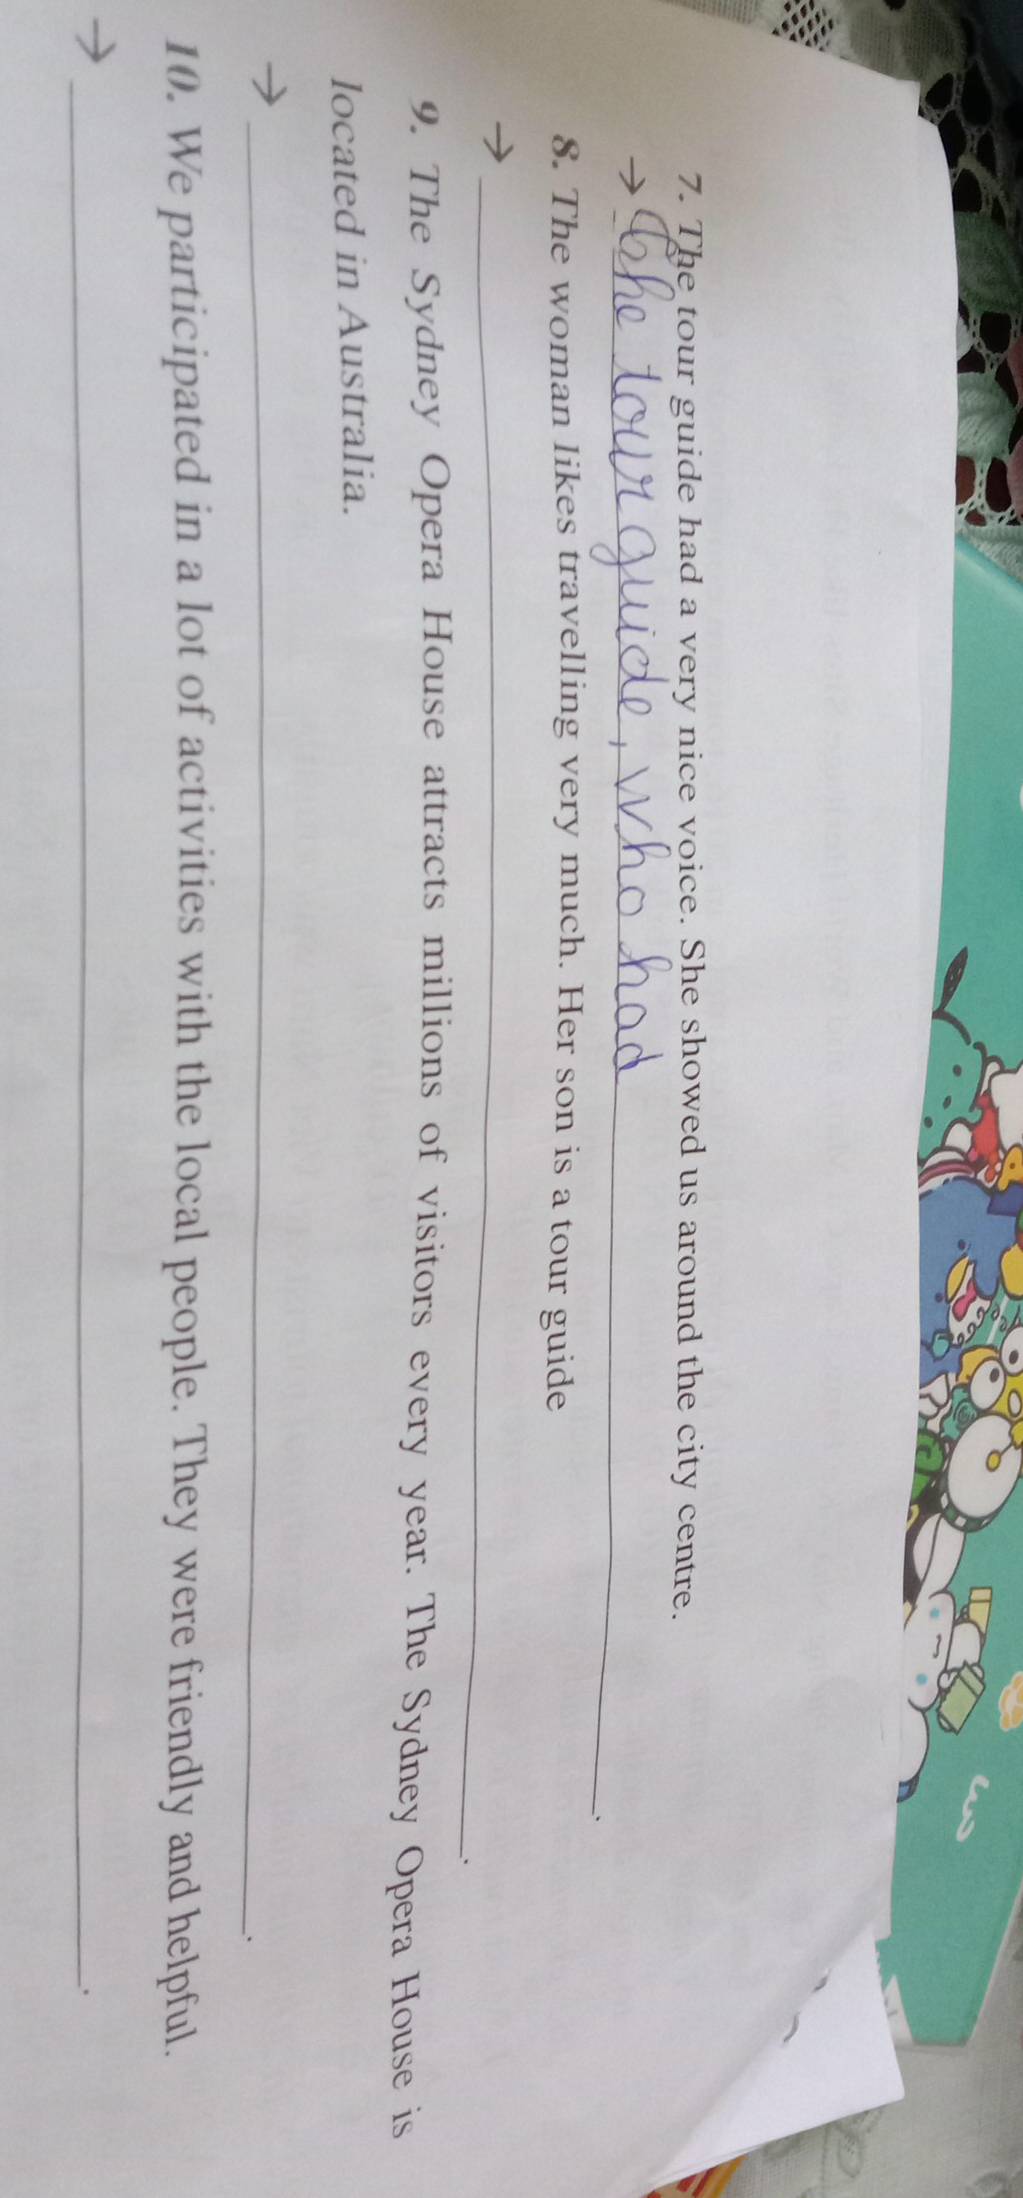 7. The tour guide had a very nice voice. She showed us around the city centre.
→ The tour guide, who had
8. The woman likes travelling very much. Her son is a tour guide
→
9. The Sydney Opera House attracts millions of visitors every year. The Sydney Opera House is
located in Australia.
→
10. We participated in a lot of activities with the local people. They were friendly and helpful.
→